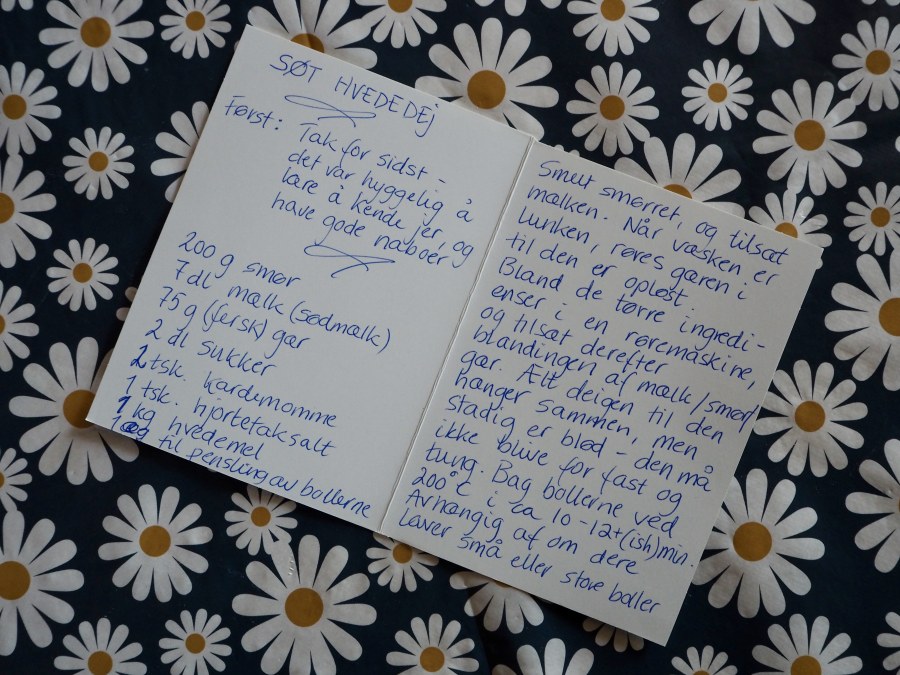 SØT HVEDEDEJ
Først: Tak for sidst -
det var hyggelig å
lære å kende jer, og
have gode naboer
200 g smør
7 dl mælk (sødmælk)
75 g (fersk) gær
2 dl sukker
2 tsk. kardemomme
1 tsk. hjortetaksalt
1 kg hvedemel
1 æg til pensling av bollerne
Smelt smørret, og tilsæt
mælken. Når væsken er
lunken, røres gæren i
til den er opløst.
Bland de tørre ingredi-
enser i en røremaskine,
og tilsæt derefter
blandingen af mælk/smør/
gær. Ælt deigen til den
hænger sammen, men
stadig er blød - den må
ikke blive for fast og
tung. Bag bollerne ved
200°C i ca 10-12+(ish)min.
Avhængig af om dere
laver små eller store boller